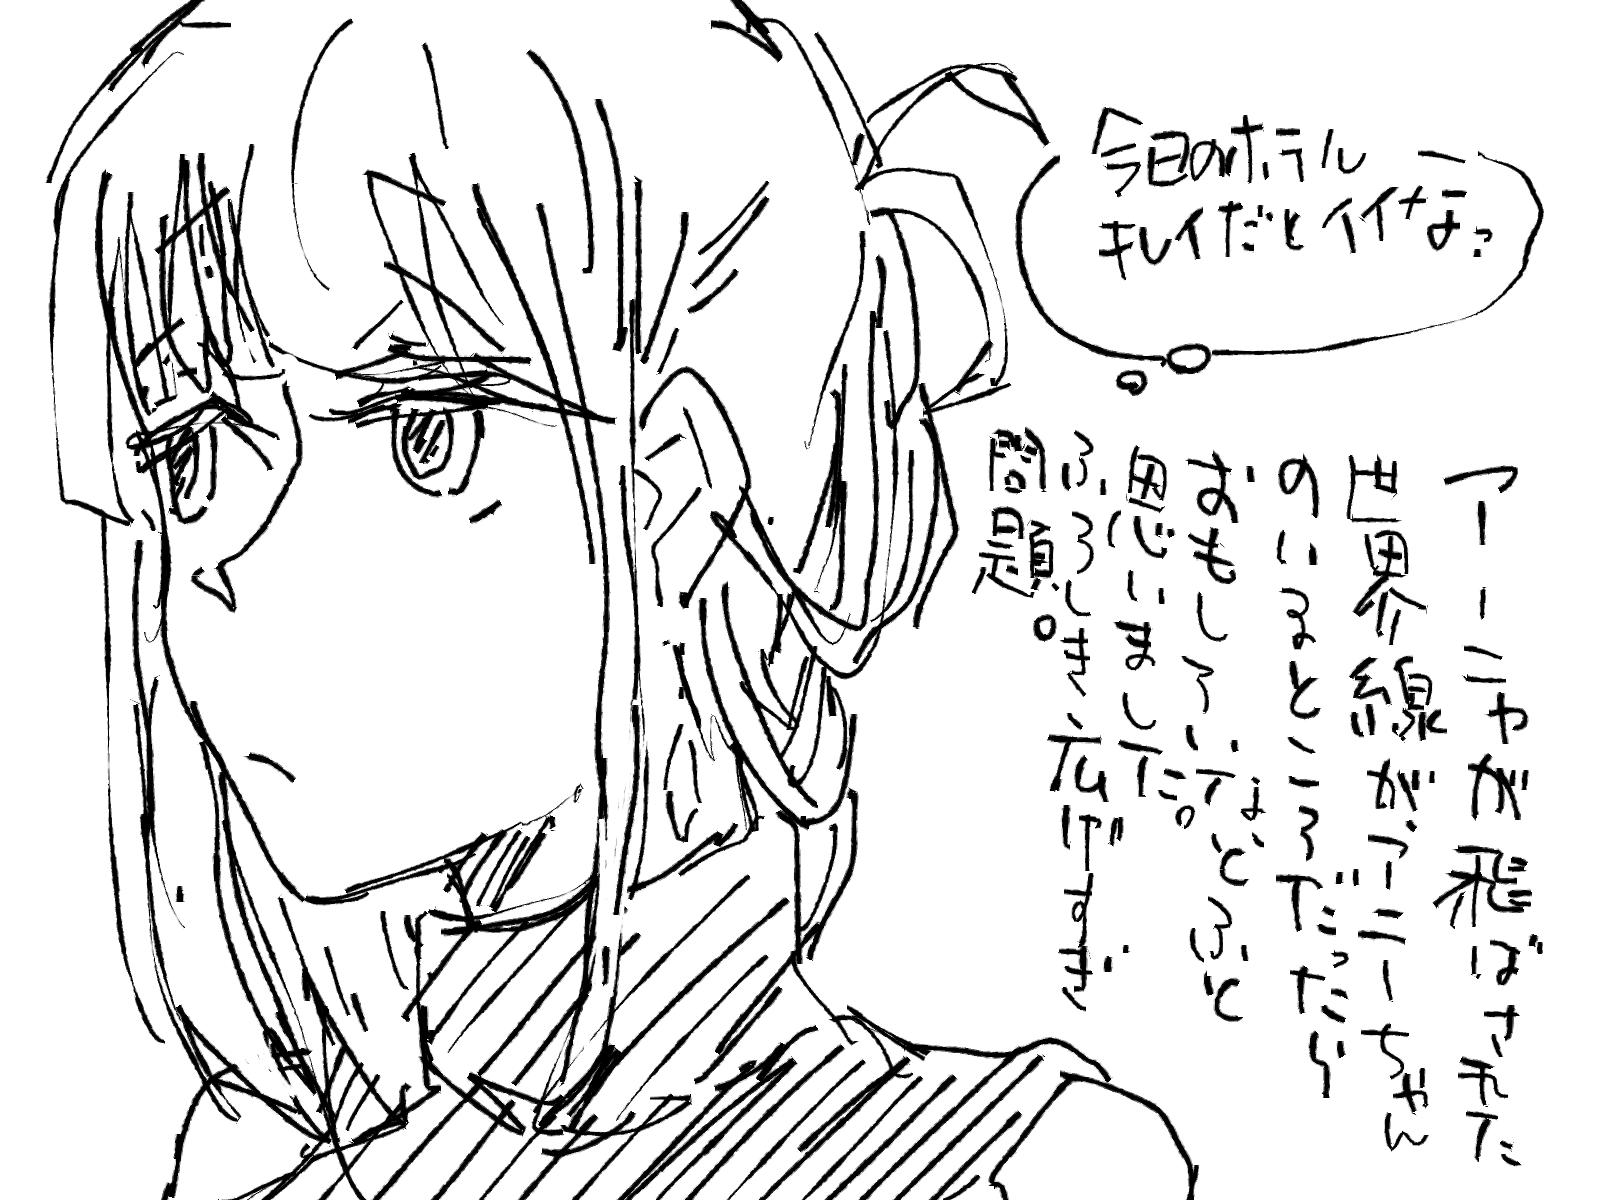 今日のホテル
キレイだとイイなっ
アーニャが飛ばされた
世界線がアニーちゃん
のいるところだったら
おもしろいなどとふと
思いました。
ふろしき広げすぎ
問題。